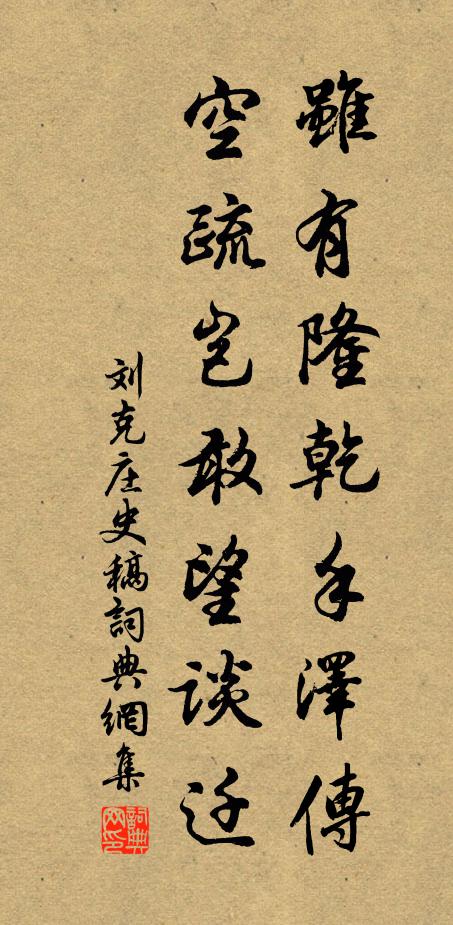 雖有隆乾手澤傳
空疏岂敢望談迁
刘克庄史稿詞典網集
詞典网印